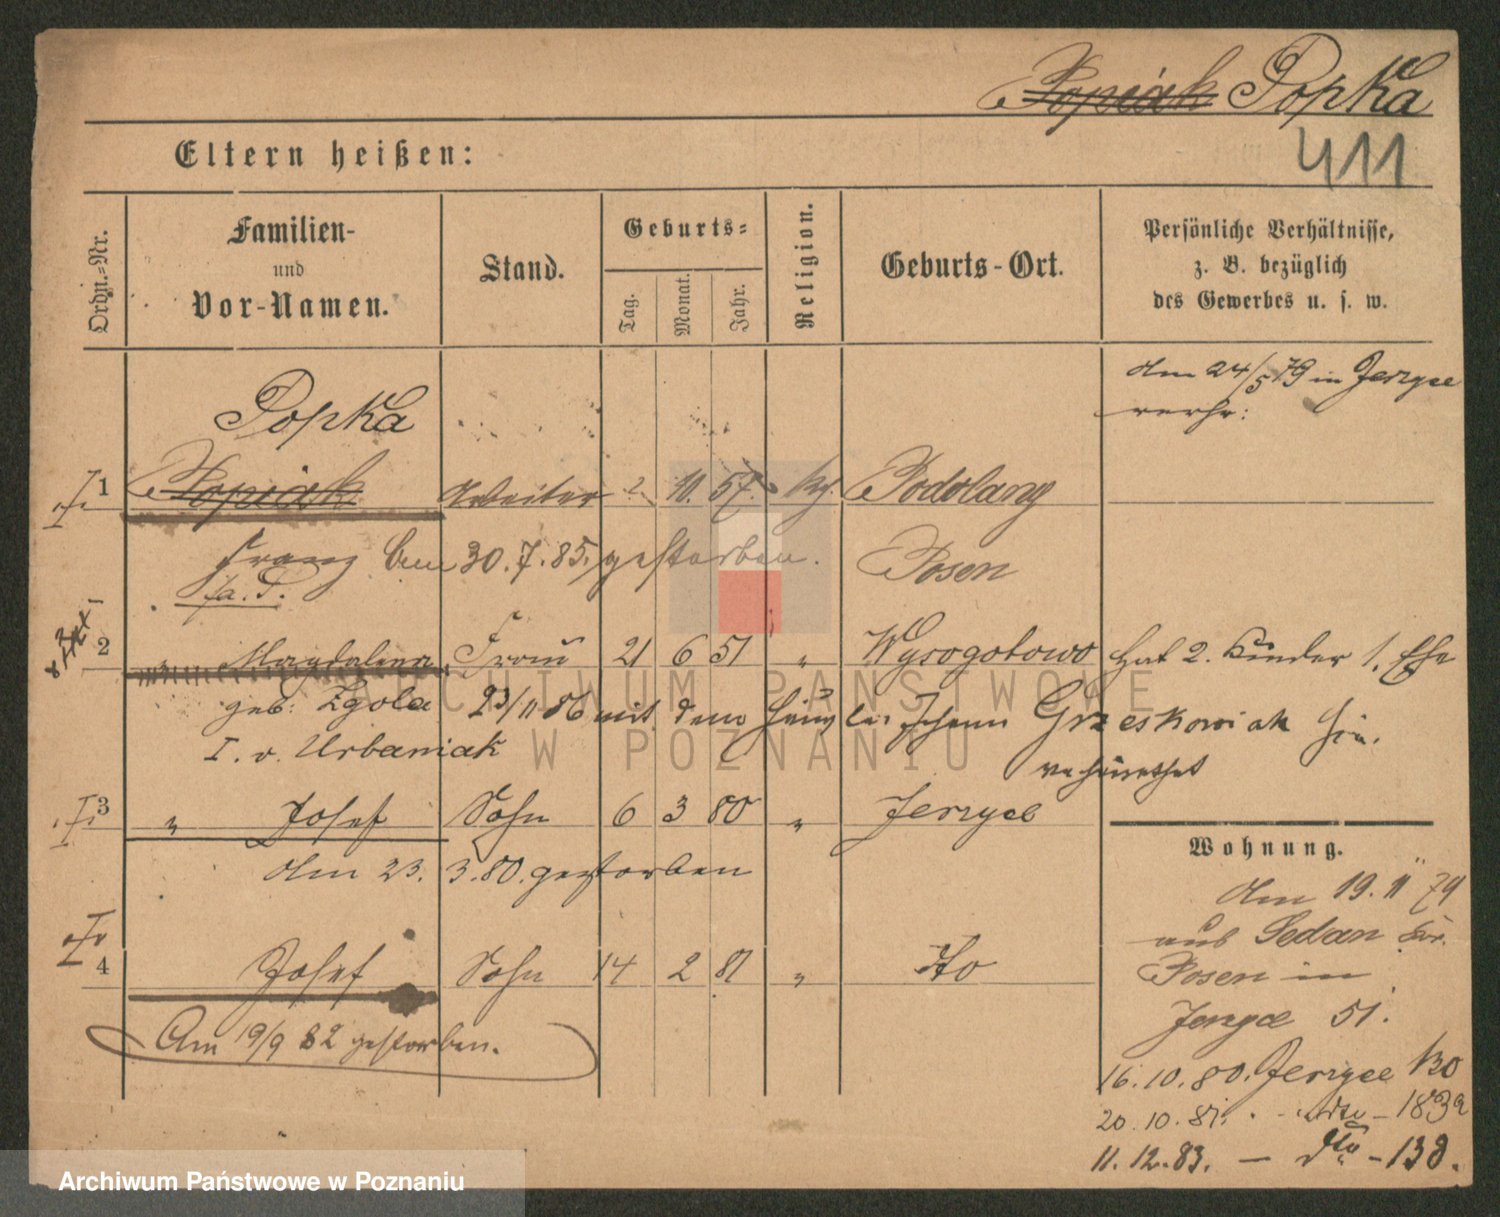 Popiak Popka
411
Eltern heißen:
Ordn.-Nr.
Familien-
und
Vor-Namen.
Stand.
Geburts-
Tag.
Monat.
Jahr.
Religion.
Geburts-Ort.
Persönliche Verhältnisse,
z. B. bezüglich
des Gewerbes u. s. w.
am 24/5 79 in Jerzyce
verh:
Popka
1 Popiak Arbeiter 2 11. 57. kth. Podolany
Franz am 30. 7. 85. gestorben. Posen
2 " Magdalena Frau 21 6 51 " Wysogotowo hat 2. Kinder 1. Ehe
geb: Zgola 23/11 86 mit dem Johann Grzeskowiak hier.
I. v. Urbaniak verheirathet
3 " Josef Sohn 6 3 80 " Jerzyce
am 23. 3. 80. gestorben
4 Josef Sohn 14 2 81 " dto
Am 19/9 82 gestorben.
Wohnung.
am 19. 11 79
aus Sedan Kr.
Posen in
Jerzyce 51.
16. 10. 80. Jerzyce 130
20. 10. 81. - dto - 183a
11. 12. 83. - dto - 138.
ARCHIWUM PAŃSTWOWE
W POZNANIU
Archiwum Państwowe w Poznaniu